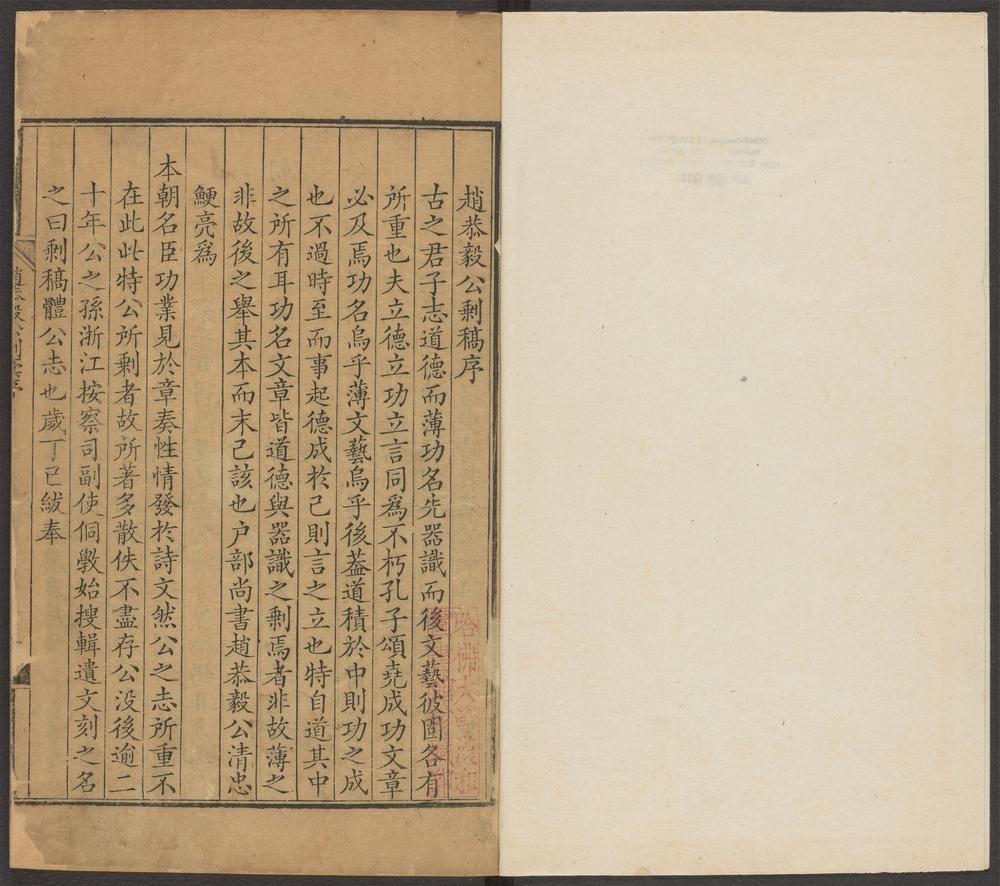 趙恭毅公剩稿序
古之君子志道德而薄功名先器識而後文藝彼固各有
所重也夫立德立功立言同爲不朽孔子頌堯成功文章
必及焉功名烏乎薄文藝烏乎後葢道積於中則功之成
也不過時至而事起德成於己則言之立也特自道其中
之所有耳功名文章皆道德與器識之剩焉者非故薄之
非故後之舉其本而末已該也户部尚書趙恭毅公清忠
鯁亮爲
本朝名臣功業見於章奏性情發於詩文然公之志所重不
在此此特公所剩者故所著多散佚不盡存公没後逾二
十年公之孫浙江按察司副使侗斆始搜輯遺文刻之名
之曰剩稿體公志也歲丁巳紱奉
趙恭毅公剩稿序